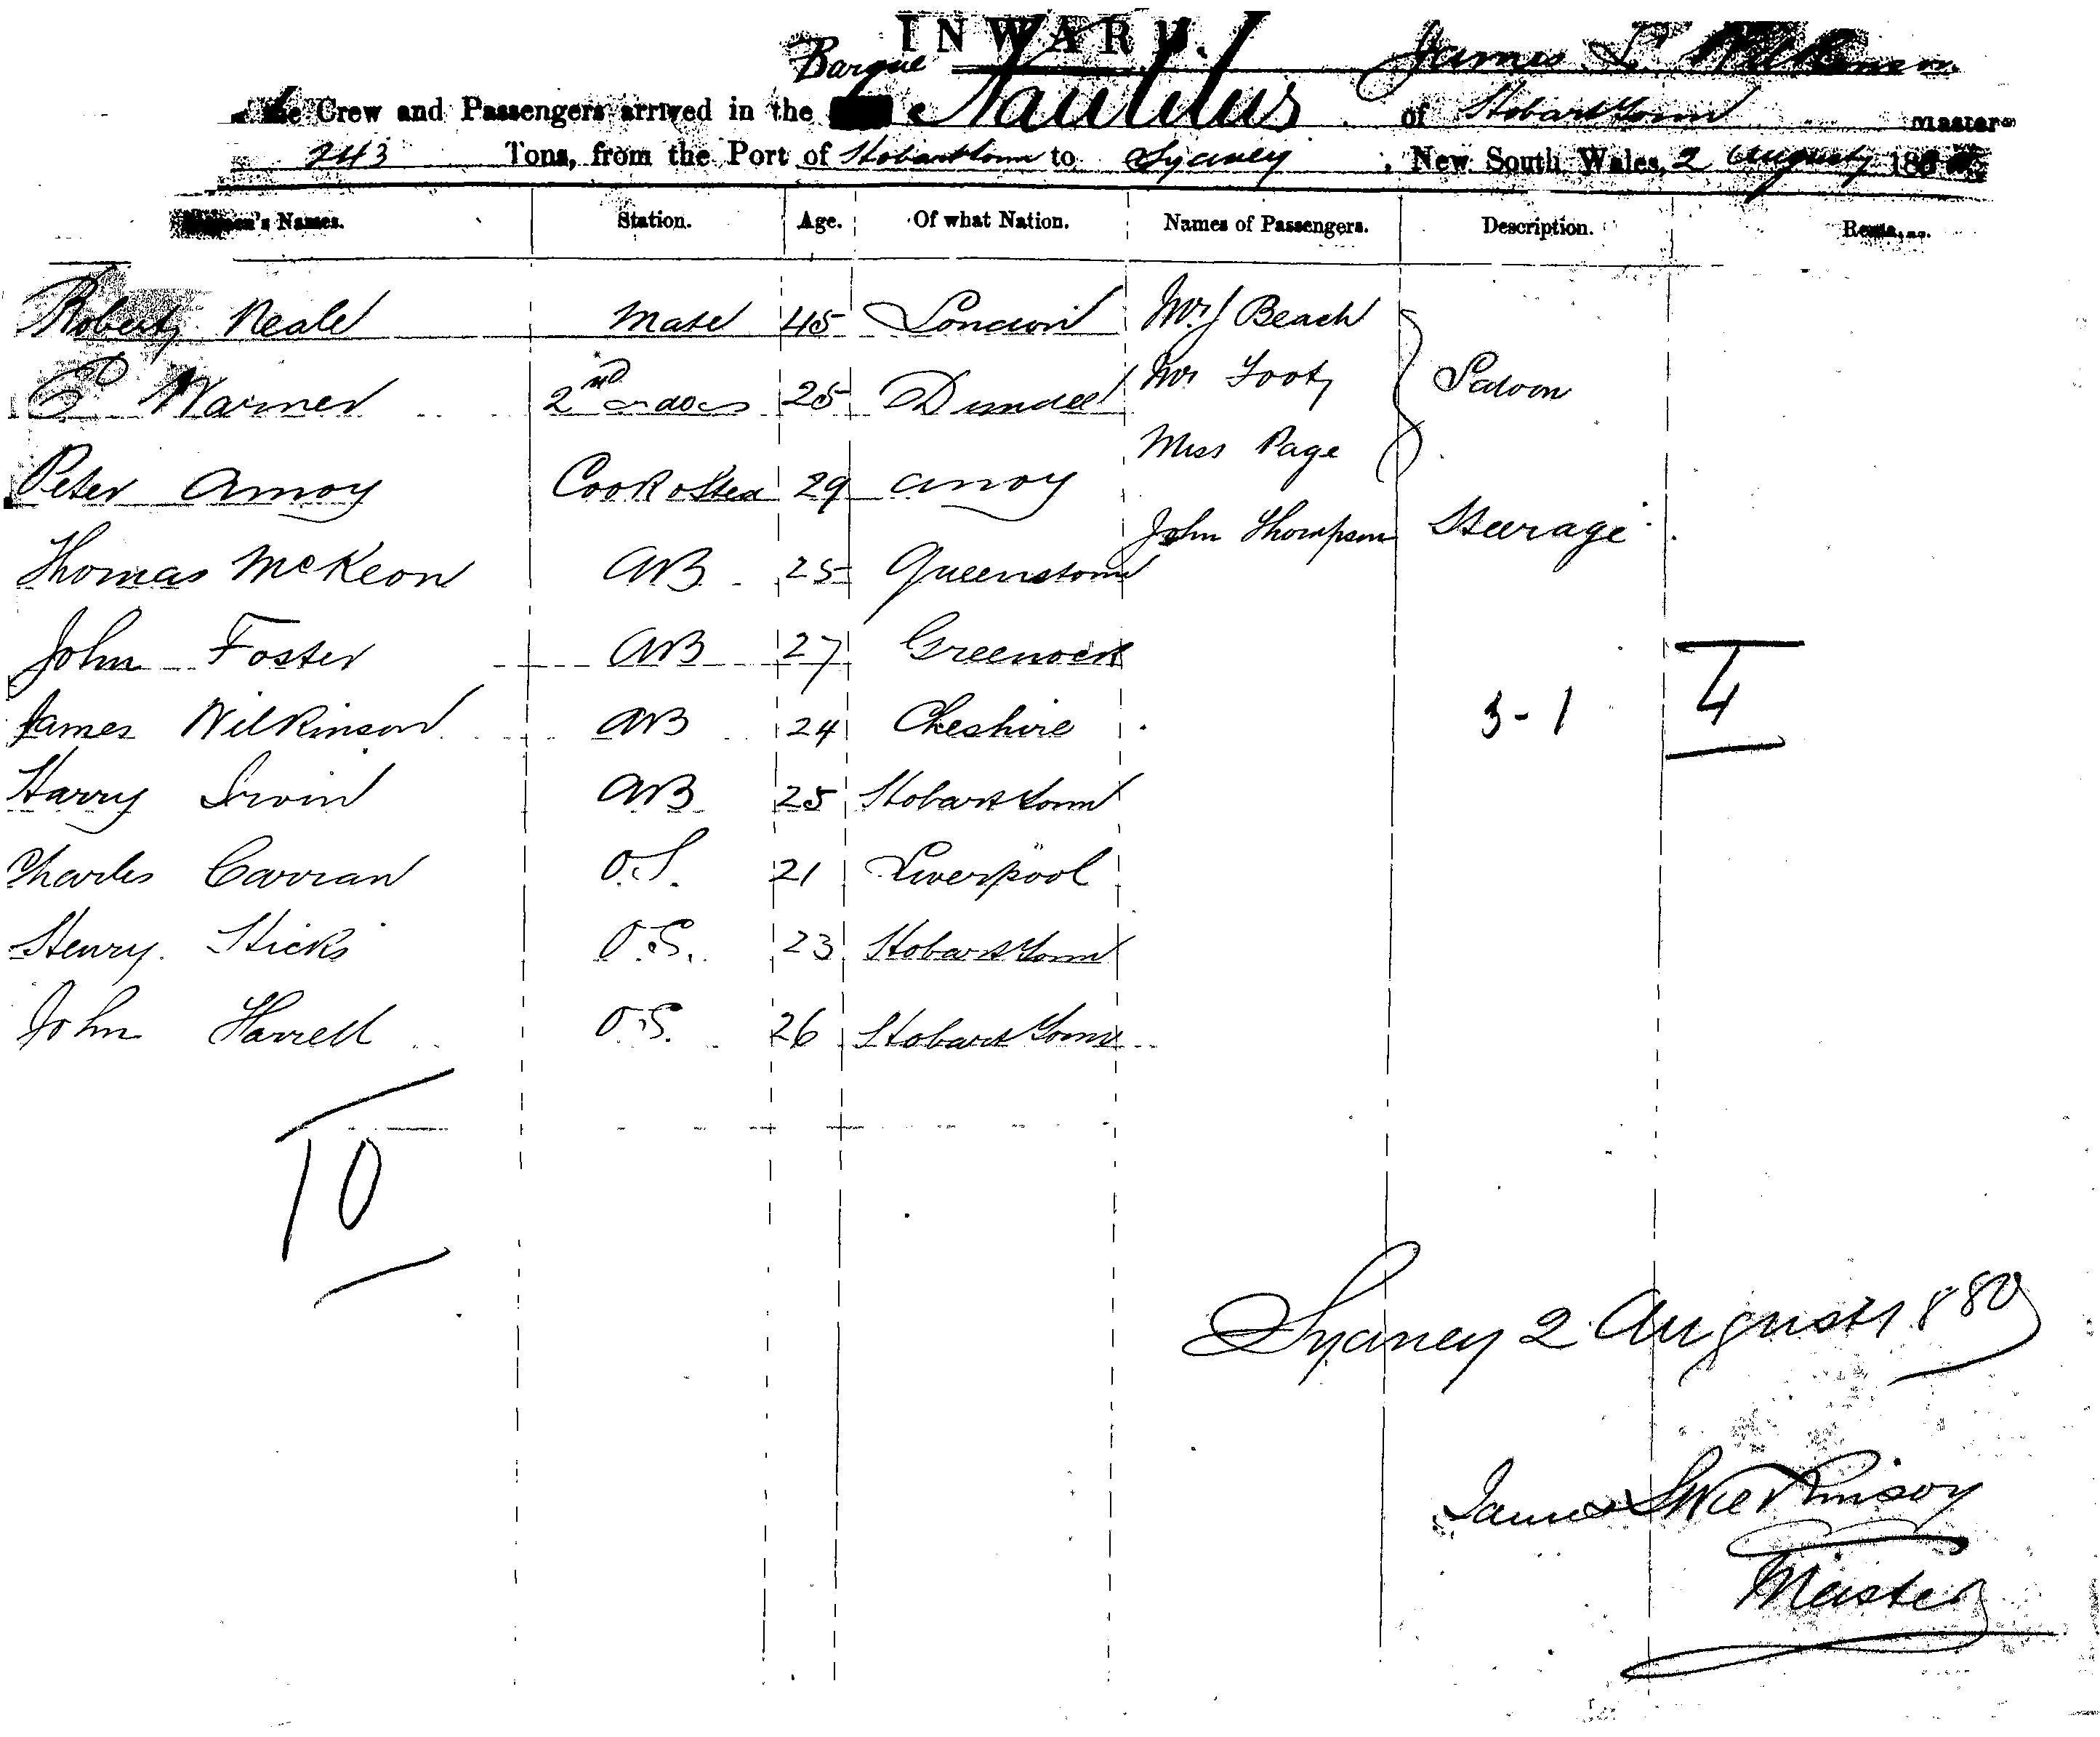 INWARD.
Barque James S. Wilkinson
the Crew and Passengers arrived in the Nautilus of Hobart Town Master
243 Tons, from the Port of Hobart Town to Sydney, New South Wales, 2 August 1880
Names. Station. Age. Of what Nation. Names of Passengers. Description.
Robert Neale Mate 45 London Mr J Beach
E Warner 2nd do 25 Dundee Mr Foot Saloon
Miss Page
Peter Amoy Cook & Stew 29 Amoy
John Thompson Steerage
Thomas McKeon AB 25 Queenstown
John Foster AB 27 Greenock
James Wilkinson AB 24 Cheshire 3-1 4
Harry Irwin AB 25 Hobart Town
Charles Carran O.S. 21 Liverpool
Henry Hicks O.S. 23 Hobart Town
John Harrell O.S. 26 Hobart Town
10
Sydney 2 August 1880
James S Wilkinson
Master